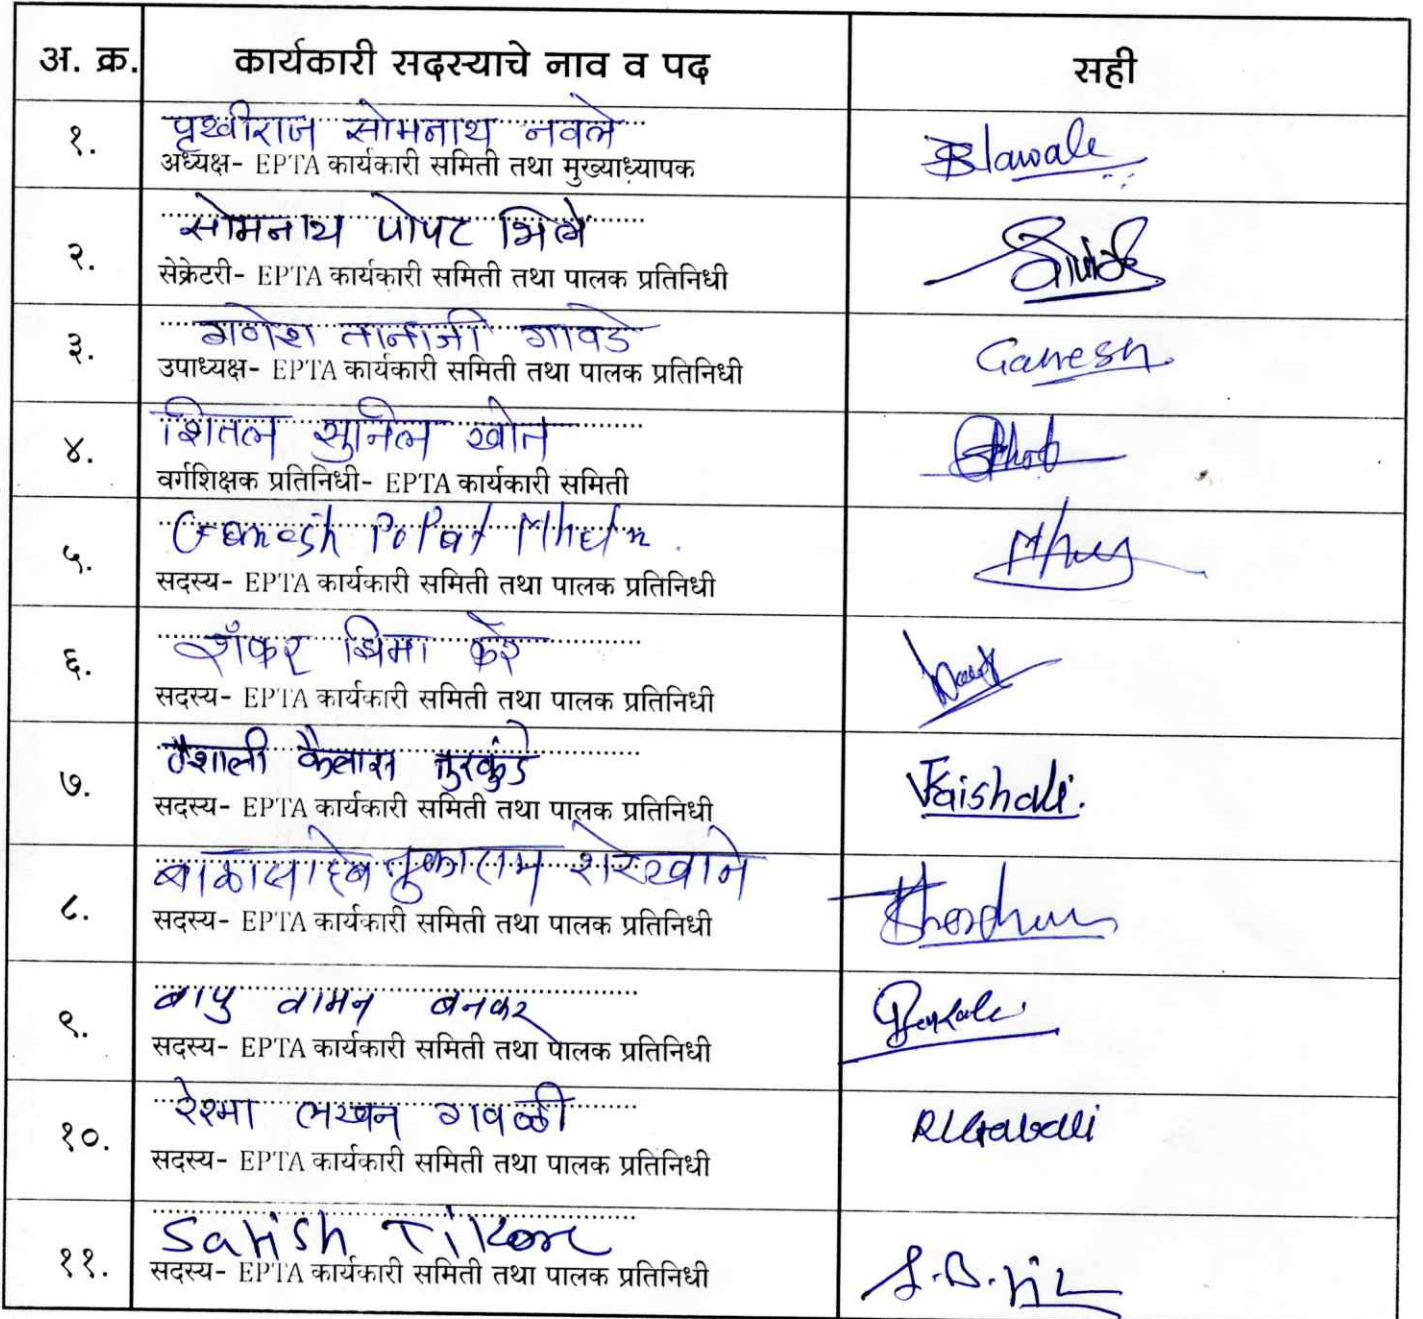 अ. क्र. कार्यकारी सदस्याचे नाव व पद सही
१. पृथ्वीराज सोमनाथ नवले
अध्यक्ष- EPTA कार्यकारी समिती तथा मुख्याध्यापक
२. सोमनाथ पोपट भिले
सेक्रेटरी- EPTA कार्यकारी समिती तथा पालक प्रतिनिधी
३. गणेश तानाजी गावडे Ganesh
उपाध्यक्ष- EPTA कार्यकारी समिती तथा पालक प्रतिनिधी
४. शितल सुनिल खोत
वर्गशिक्षक प्रतिनिधी- EPTA कार्यकारी समिती
५. Ganesh Popat
सदस्य- EPTA कार्यकारी समिती तथा पालक प्रतिनिधी
६. शंकर भिमा
सदस्य- EPTA कार्यकारी समिती तथा पालक प्रतिनिधी
७. वैशाली कैलास तुरकुंडे Vaishali.
सदस्य- EPTA कार्यकारी समिती तथा पालक प्रतिनिधी
८. बाळासाहेब तुकाराम शेरखाने
सदस्य- EPTA कार्यकारी समिती तथा पालक प्रतिनिधी
९. बापु वामन बनकर
सदस्य- EPTA कार्यकारी समिती तथा पालक प्रतिनिधी
१०. रेश्मा लखन गवळी RLGavali
सदस्य- EPTA कार्यकारी समिती तथा पालक प्रतिनिधी
११. Satish
सदस्य- EPTA कार्यकारी समिती तथा पालक प्रतिनिधी